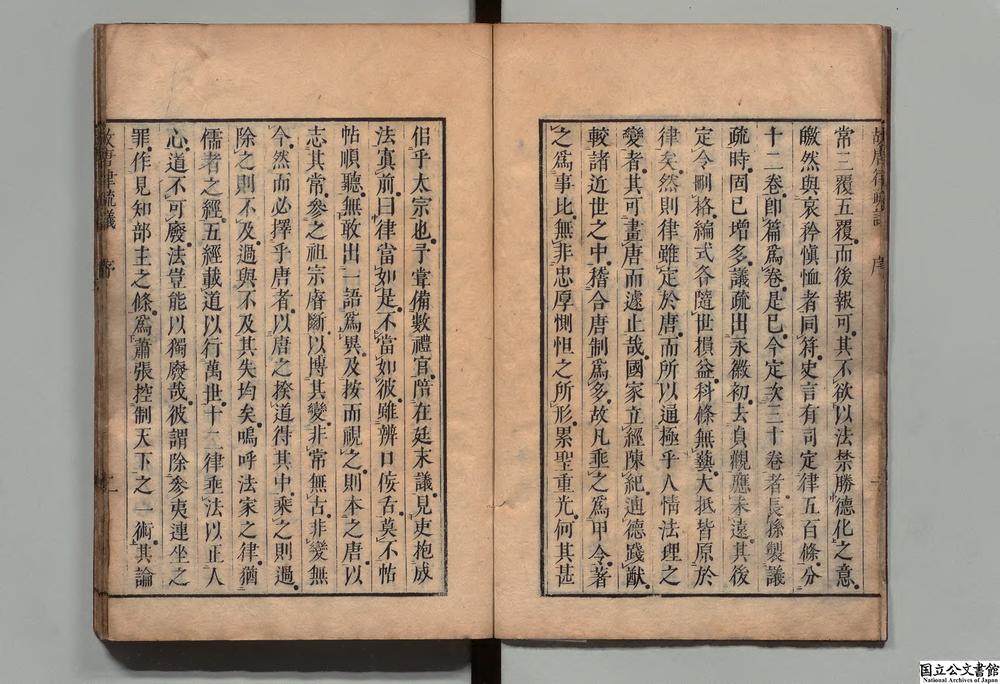 常三覆五覆而後報可其不欲以法禁勝德化之意
皦然與哀矜愼恤者同符史言有司定律五百條分
十二卷卽篇爲卷是已今定次三十卷者長孫製議
疏時固已增多議疏出永徽初去貞觀應未遠其後
定令刪格編式各隨世損益科條無藝大抵皆原於
律矣然則律雖定於唐而所以通極乎人情法理之
變者其可畫唐而遽止哉國家立經陳紀遹德踐猷
較諸近世之中稽合唐制爲多故凡垂之爲甲令著
之爲事比無非忠厚惻怛之所形累聖重光何其甚
侣乎太宗也予嘗備數禮官陪在廷末議見吏抱成
法寘前曰律當如是不當如彼雖辨口佞舌莫不帖
帖順聽無敢出一語爲異及按而視之則本之唐以
志其常參之祖宗睿斷以博其變非常無古非變無
今然而必擇乎唐者以唐之揆道得其中乘之則過
除之則不及過與不及其失均矣嗚呼法家之律猶
儒者之經五經載道以行萬世十二律垂法以正人
心道不可廢法豈能以獨廢哉彼謂除參夷連坐之
罪作見知部主之條爲蕭張控制天下之一術其論
故唐律疏議 序 二
国立公文書館
National Archives of Japan